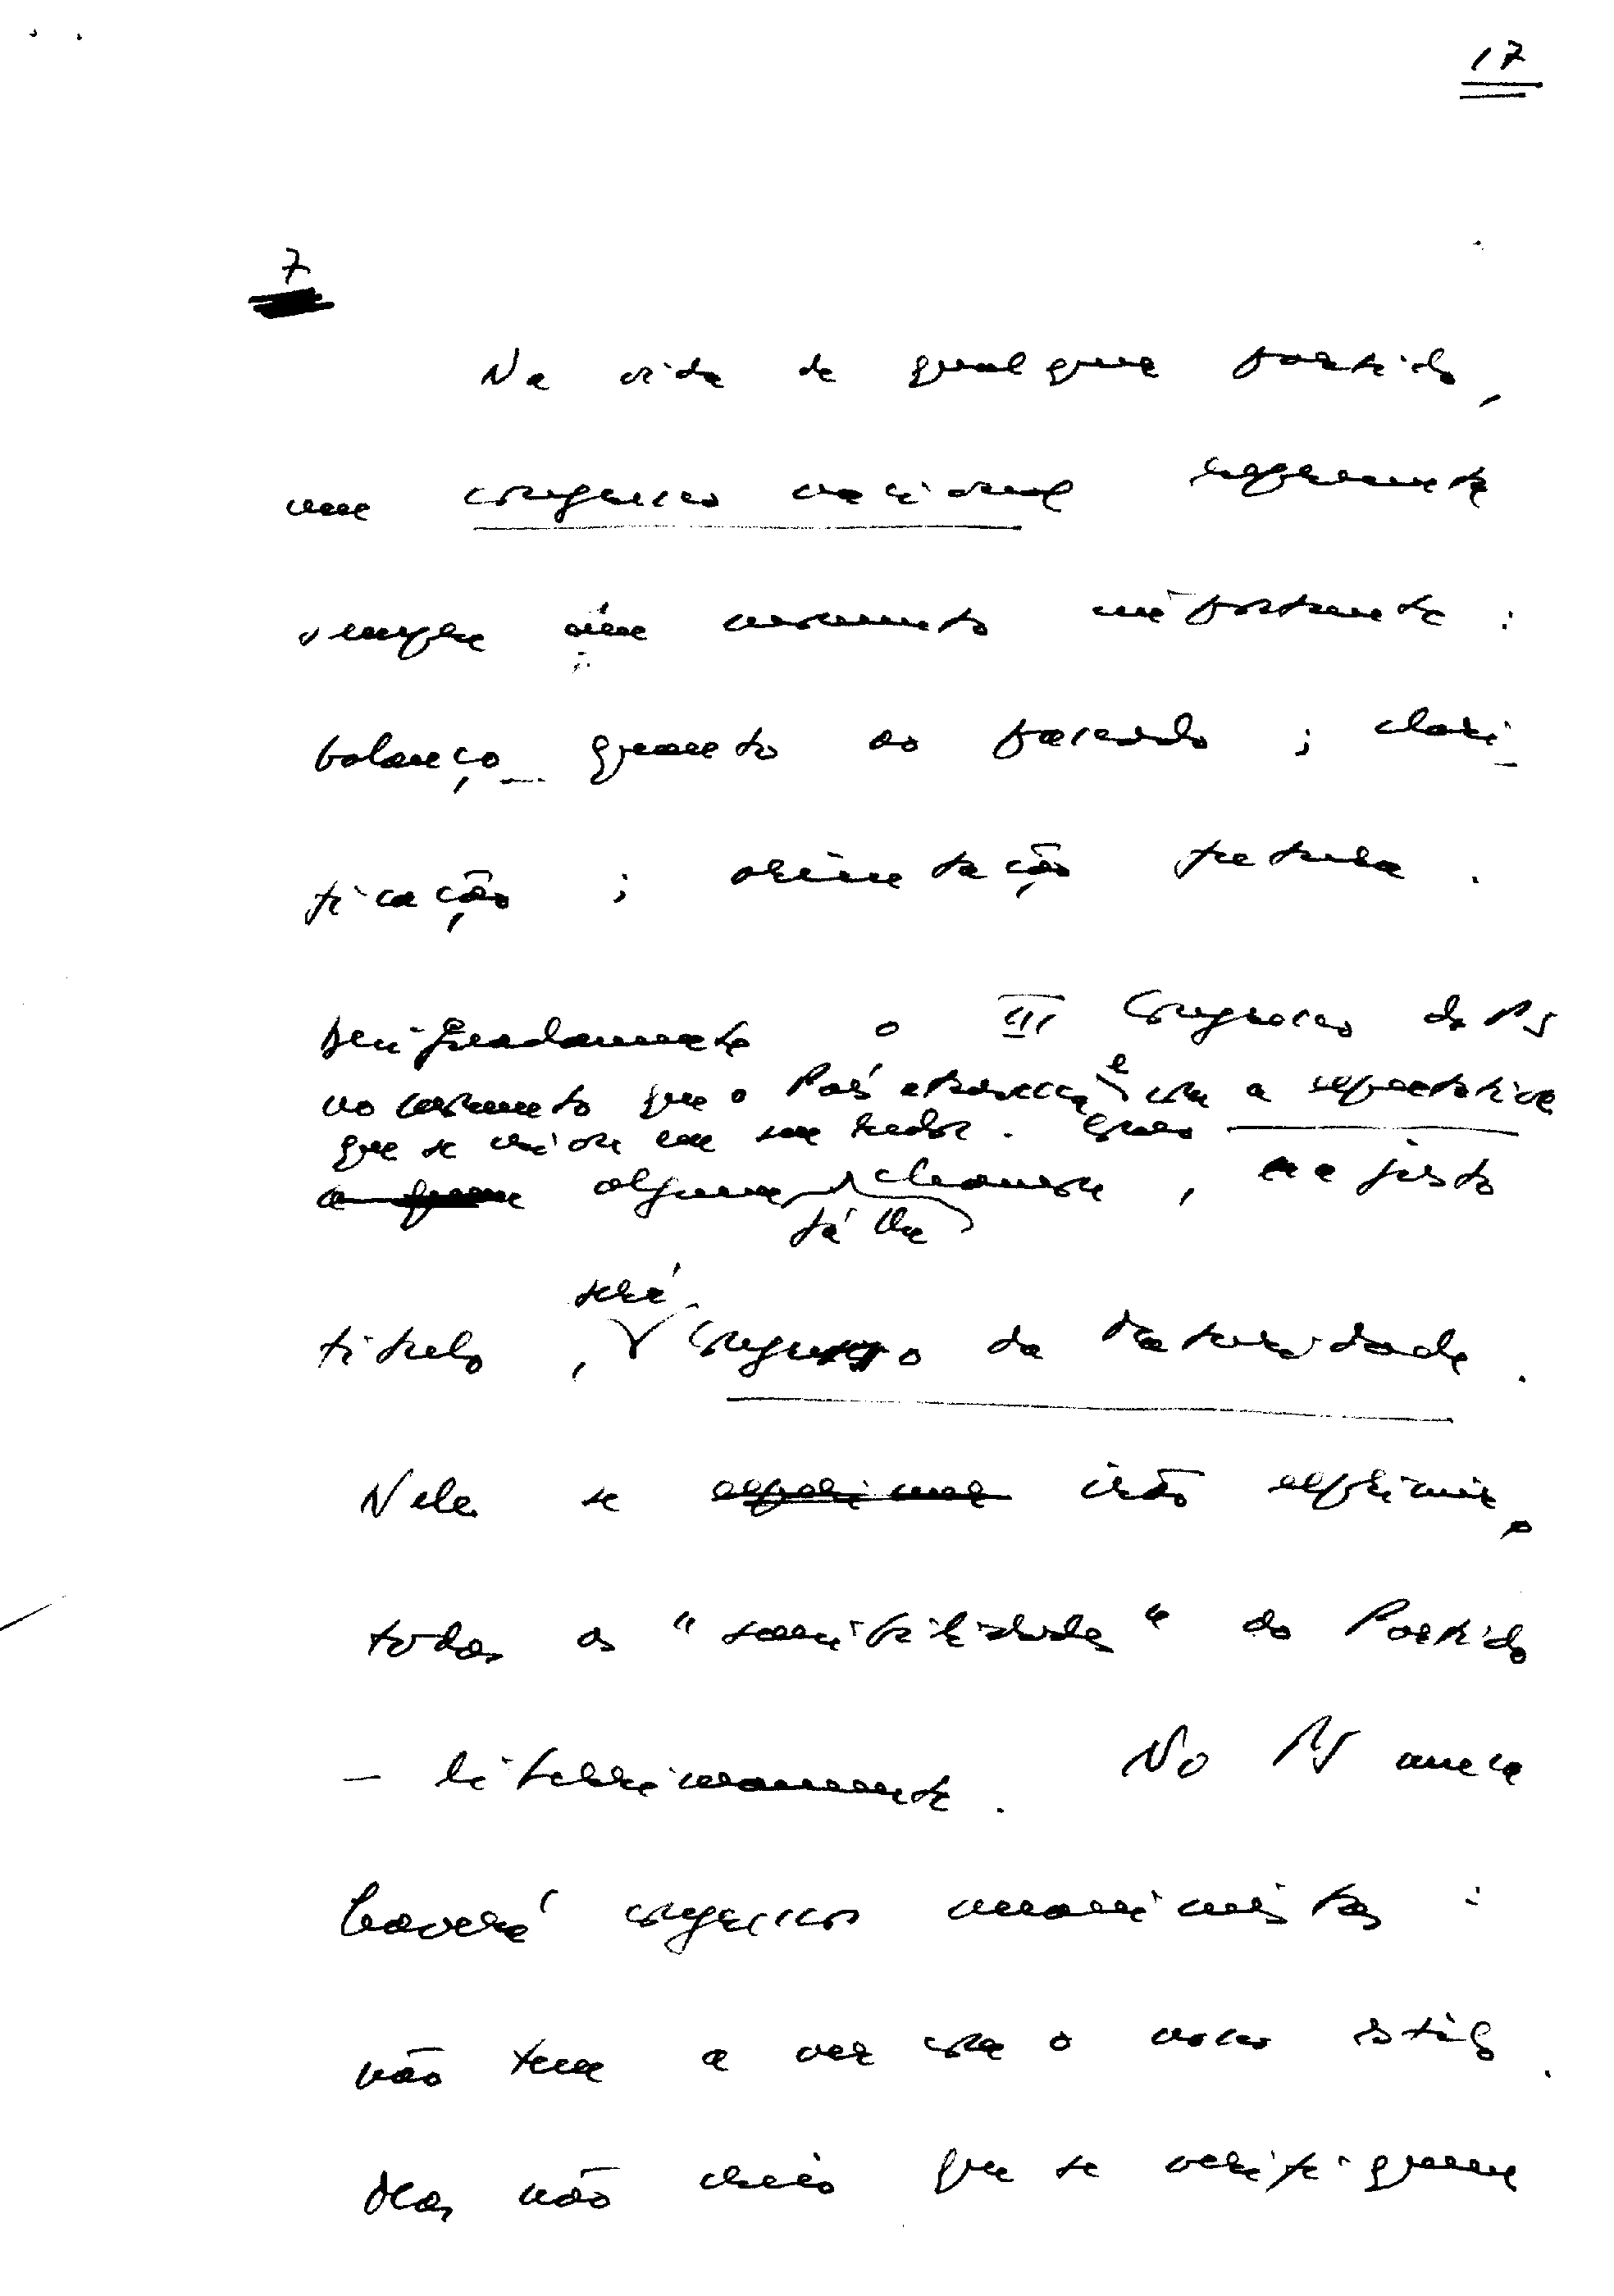 17
7
Na vida de qualquer partido,
um congresso nacional representa
sempre um momento importante:
balanço quanto ao passado; clari-
ficação; orientação futura.
Designadamente o III Congresso do PS
no momento que o País atravessa e com a expectativa
que se criou em seu redor.
algum já lhe chamou, e a justo
título, será Congresso da Maturidade.
Nele se exprimem irão exprimir,
todas as "sensibilidades" do Partido
- libérrimamente. No PS nunca
haverá congressos unanimistas:
não tem a ver com o nosso estilo.
Mas não creio que se verifiquem